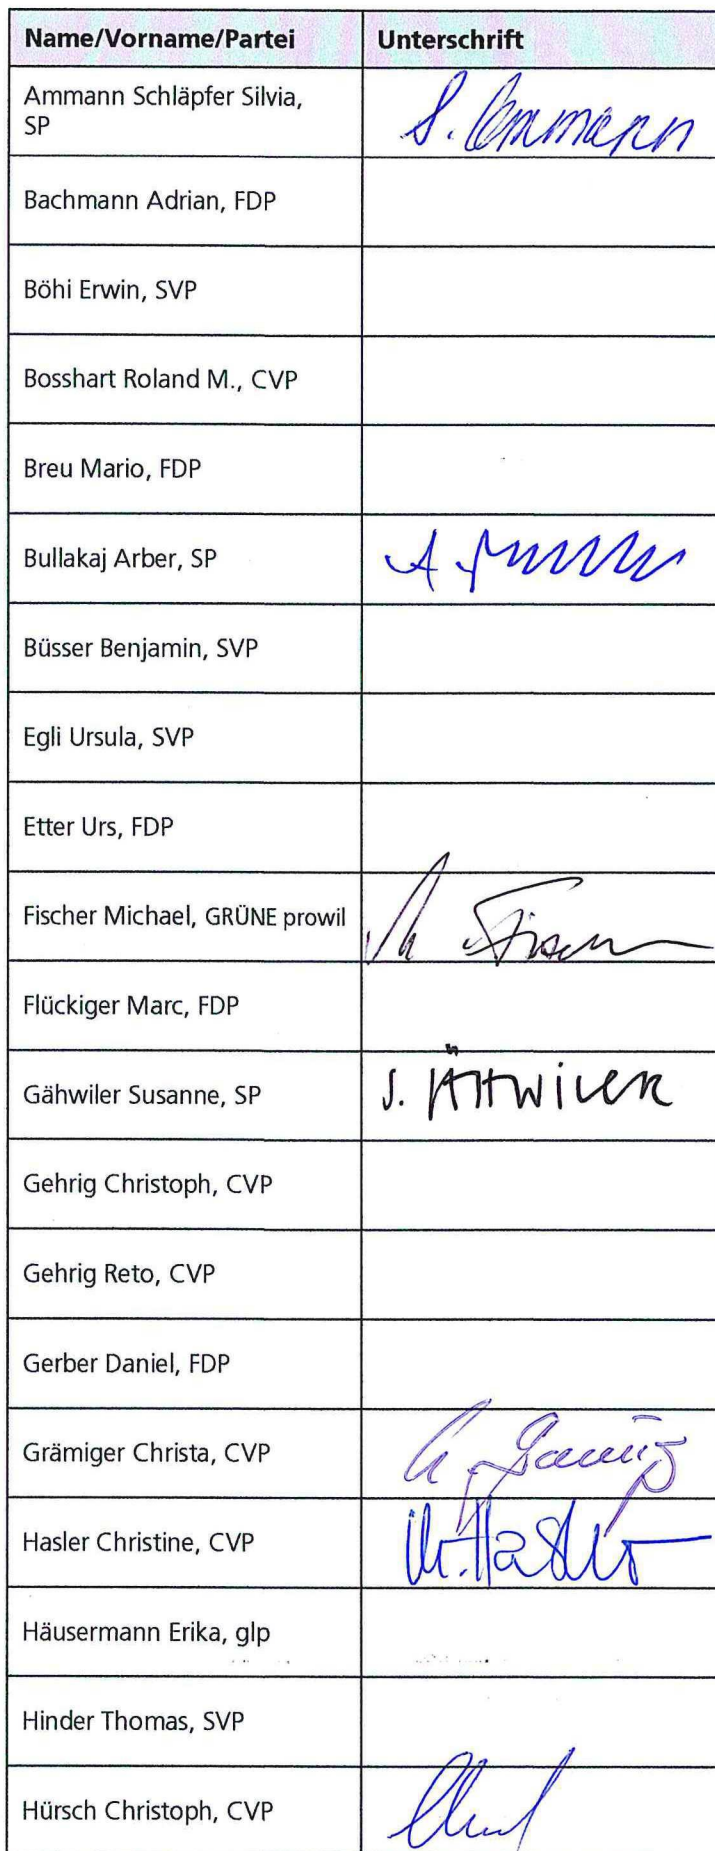 Name/Vorname/Partei Unterschrift
Ammann Schläpfer Silvia,
SP
S. Ammann
Bachmann Adrian, FDP
Böhi Erwin, SVP
Bosshart Roland M., CVP
Breu Mario, FDP
Bullakaj Arber, SP
A.
Büsser Benjamin, SVP
Egli Ursula, SVP
Etter Urs, FDP
Fischer Michael, GRÜNE prowil
M Fischer
Flückiger Marc, FDP
Gähwiler Susanne, SP
S. GÄHWILER
Gehrig Christoph, CVP
Gehrig Reto, CVP
Gerber Daniel, FDP
Grämiger Christa, CVP
Hasler Christine, CVP
Ch. Hasler
Häusermann Erika, glp
Hinder Thomas, SVP
Hürsch Christoph, CVP